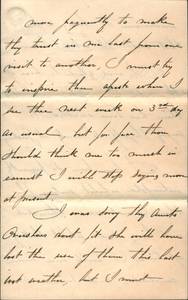 more frequently to make
thy trust in me last from one
visit to another. I must try
to enforce them afresh when I
see thee next week on 3rd day
as usual, but for fear thee
should think me too much in
earnest I will stop saying more
at present.
I was sorry thy Aunts
short fit she will have
lost the use of them this last
hot weather, but I must